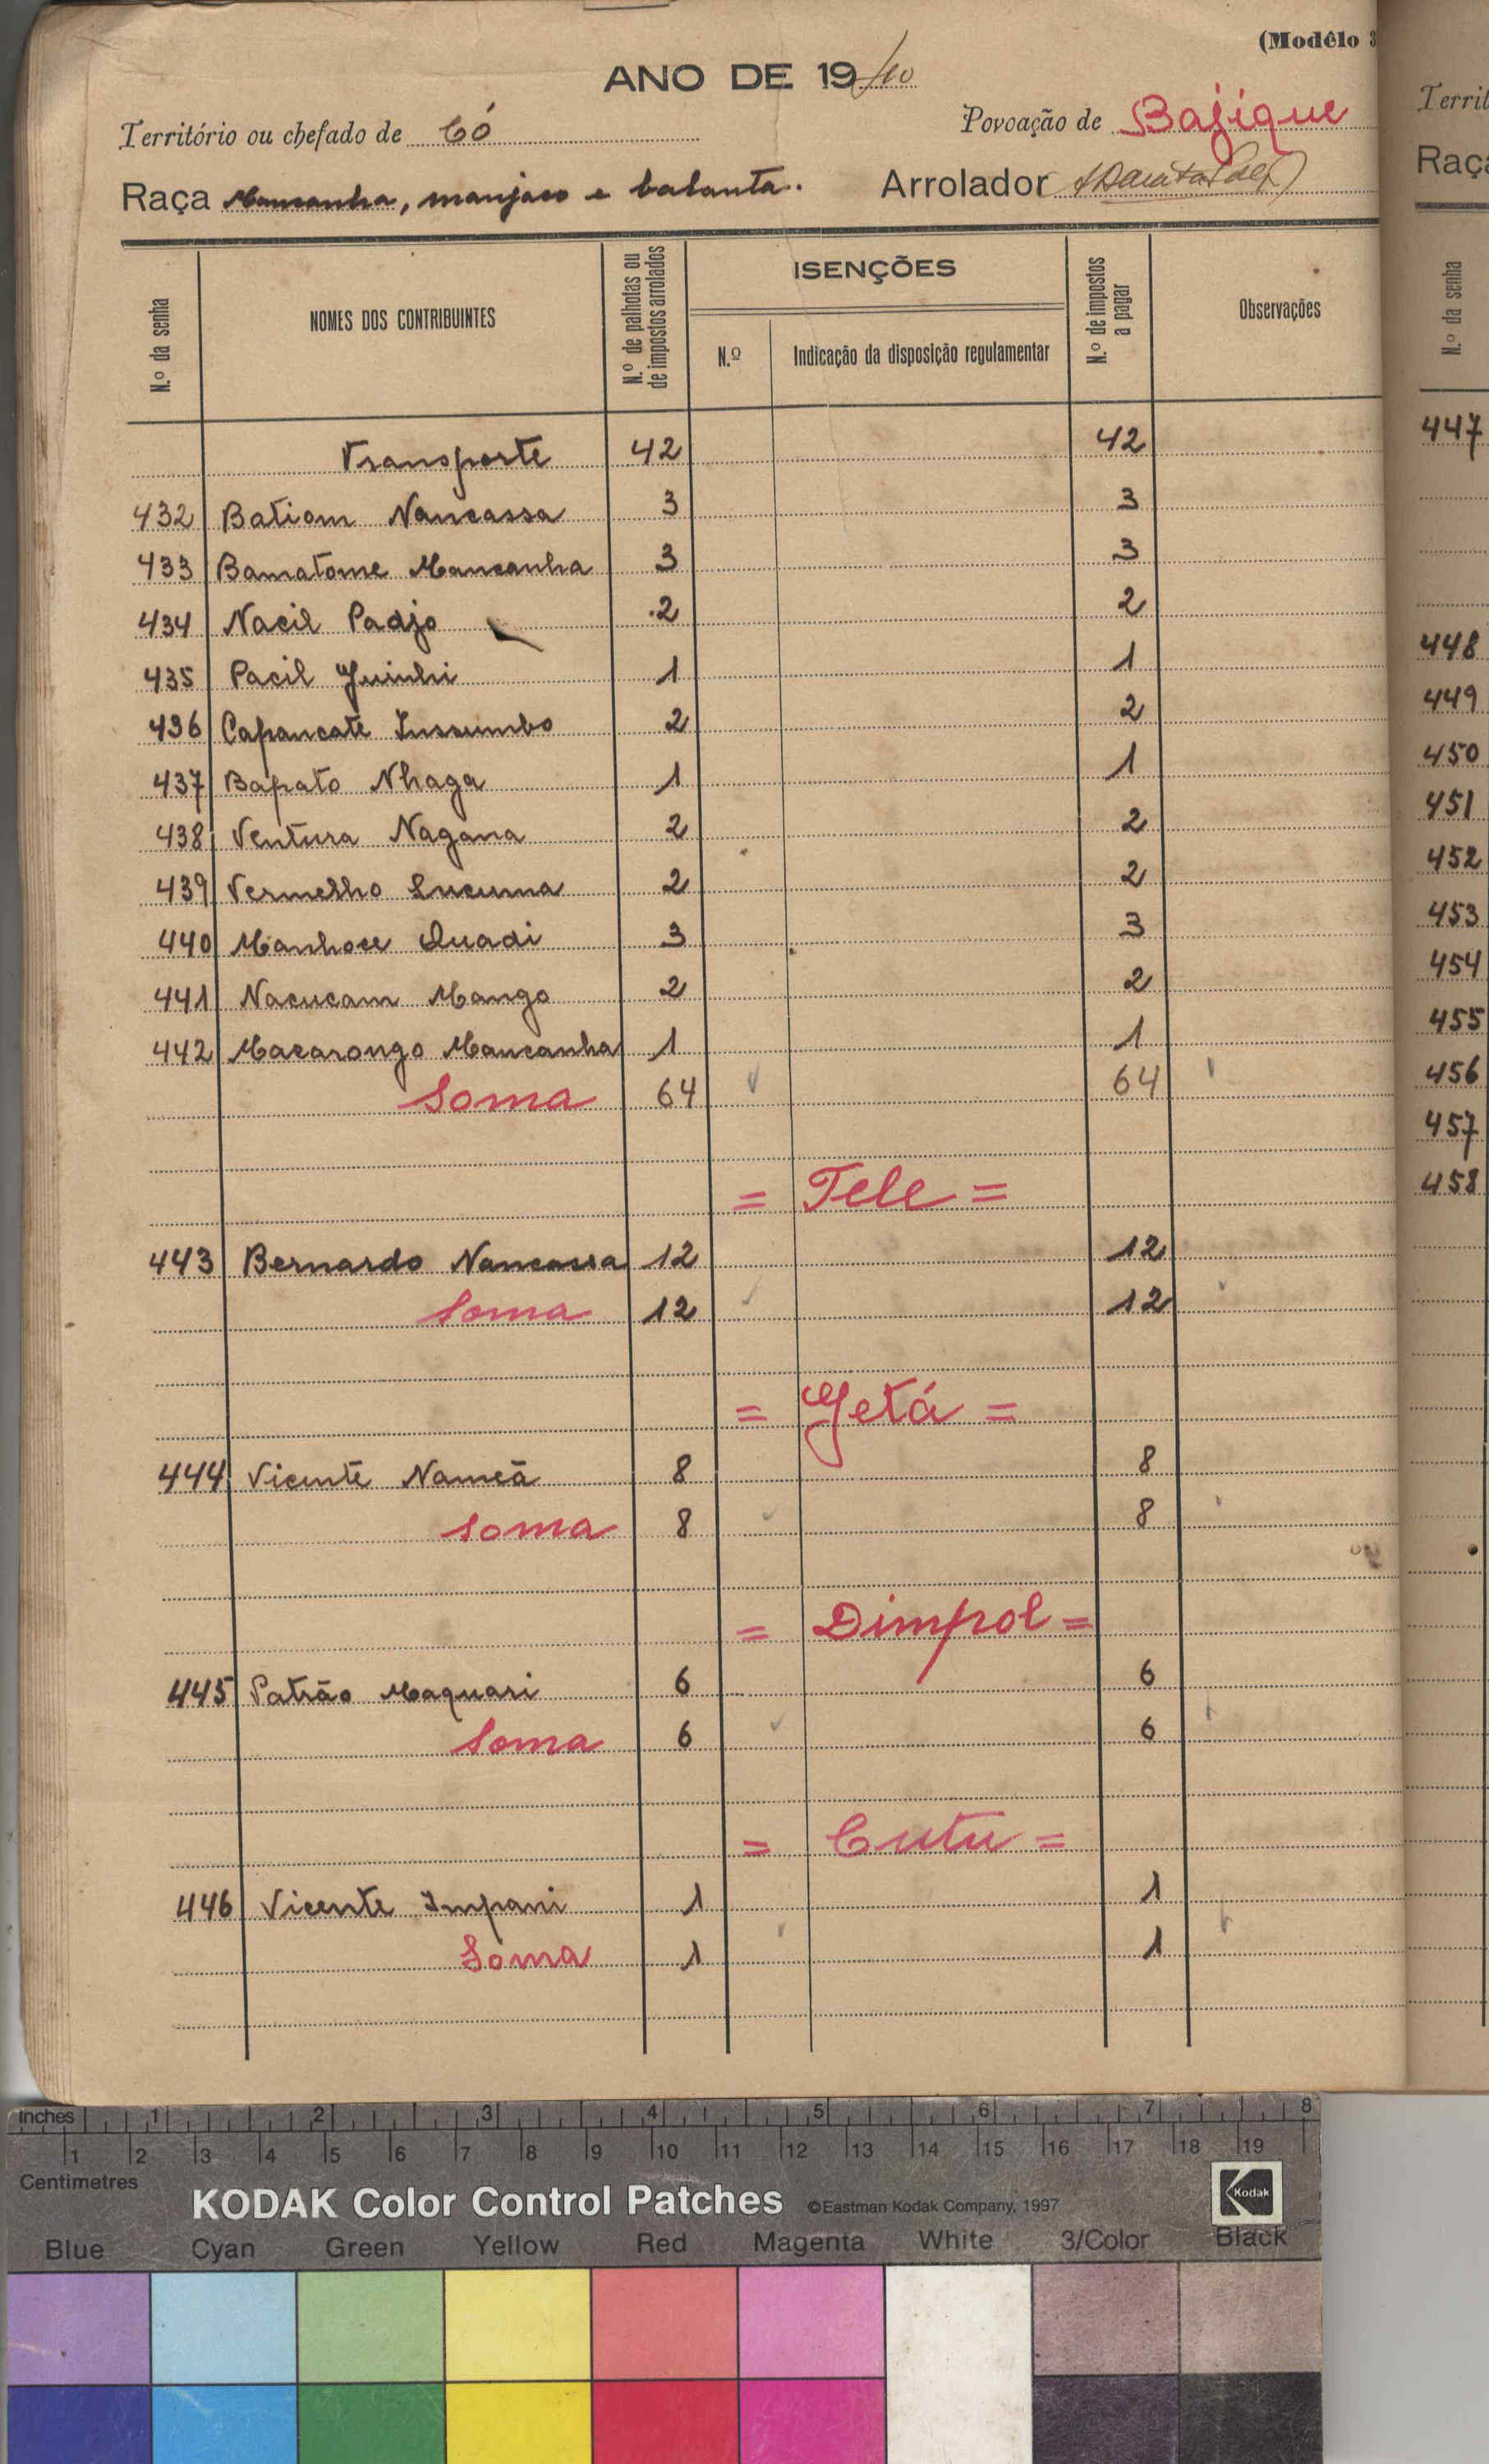 (Modêlo 3
ANO DE 1940
Território ou chefado de Có
Povoação de Bajique
Raça Mancanha, manjaco e balanta.
Arrolador
N.º da senha
NOMES DOS CONTRIBUINTES
N.º de palhotas ou de impostos arrolados
ISENÇÕES
N.º
Indicação da disposição regulamentar
N.º de impostos a pagar
Observações
Transporte 42 42
432 Batiom Nancassa 3 3
433 Bamatome Mancanha 3 3
434 Nacil Padjo 2 2
435 Pacil Guinhi 1 1
436 Capancate Inssumbo 2 2
437 Bapato Nhaga 1 1
438 Ventura Nagana 2 2
439 Vermelho Sucuma 2 2
440 Manhoce Quadi 3 3
441 Nacucam Mango 2 2
442 Macarongo Mancanha 1 1
Soma 64 64
= Tele =
443 Bernardo Nancassa 12 12
Soma 12 12
= Getá =
444 Vicente Namcã 8 8
Soma 8 8
= Dimpol =
445 Patrão Maquari 6 6
Soma 6 6
= Cutu =
446 Vicente Impani 1 1
Soma 1 1
Territ
Raça
N.º da senha
447
448
449
450
451
452
453
454
455
456
457
458
Inches 1 2 3 4 5 6 7 8
1 2 3 4 5 6 7 8 9 10 11 12 13 14 15 16 17 18 19
Centimetres
KODAK Color Control Patches ©Eastman Kodak Company, 1997 Kodak
Blue Cyan Green Yellow Red Magenta White 3/Color Black